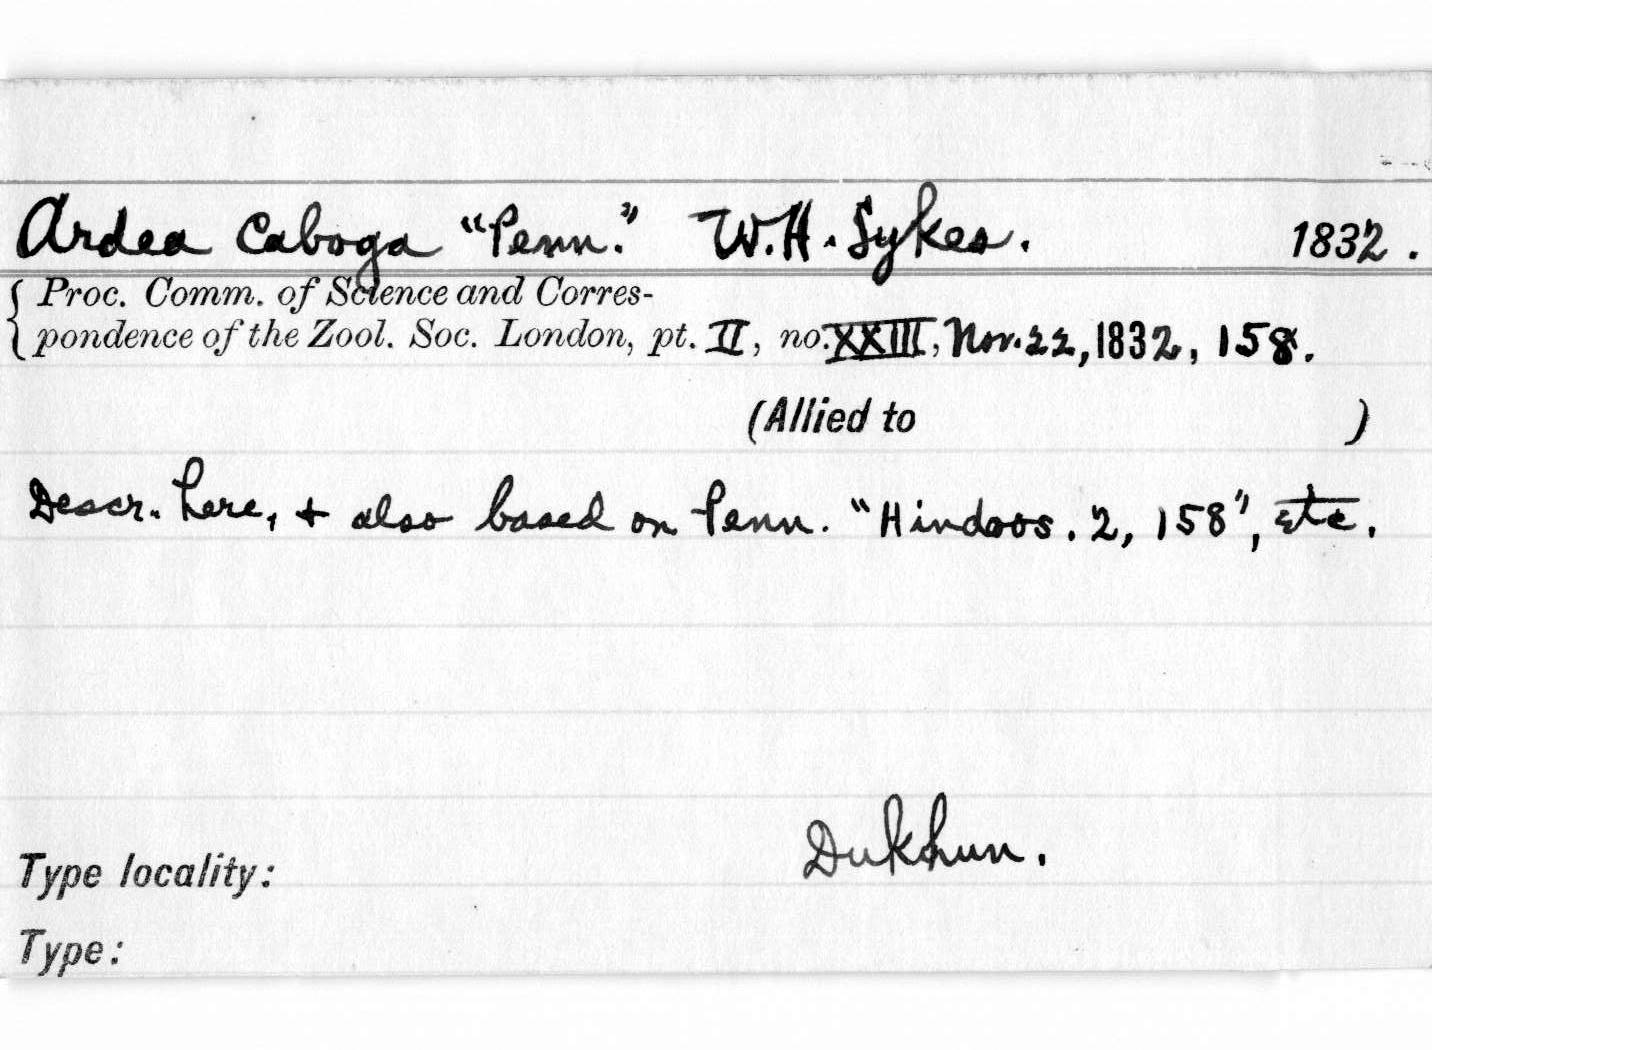 Ardea Caboga "Penn." W.H. Sykes. 1832.
Proc. Comm. of Science and Corres-
pondence of the Zool. Soc. London, pt. II, no. XXIII, Nov. 22, 1832, 158.
(Allied to )
Descr. here, + also based on Penn. "Hindoos. 2, 158", etc.
Dukhun.
Type locality:
Type: